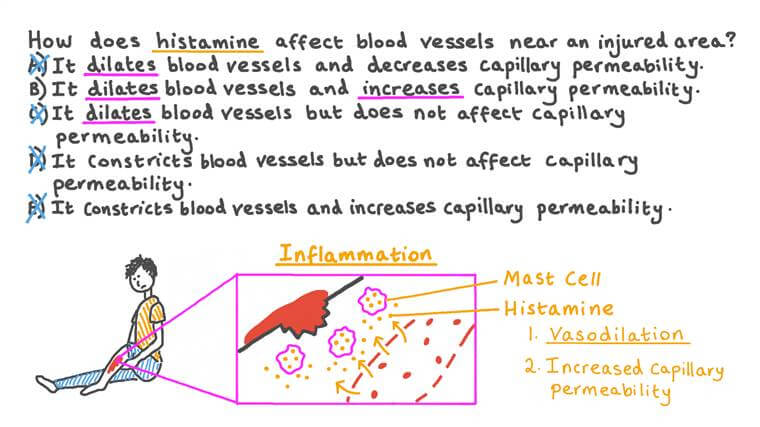 How does histamine affect blood vessels near an injured area?
A) It dilates blood vessels and decreases capillary permeability.
B) It dilates blood vessels and increases capillary permeability.
C) It dilates blood vessels but does not affect capillary
permeability.
D) It constricts blood vessels but does not affect capillary
permeability.
E) It constricts blood vessels and increases capillary permeability.
Inflammation
Mast Cell
Histamine
1. Vasodilation
2. Increased capillary
permeability